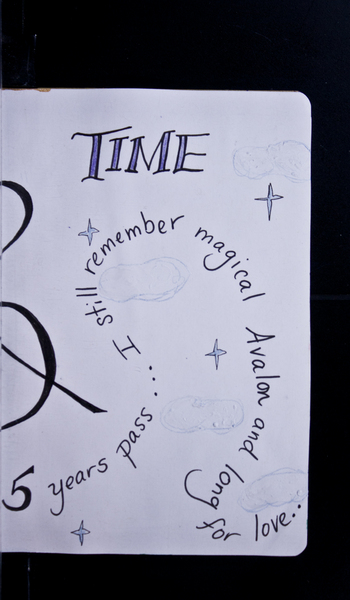 TIME
5 years pass...
I still remember magical Avalon and long for love...